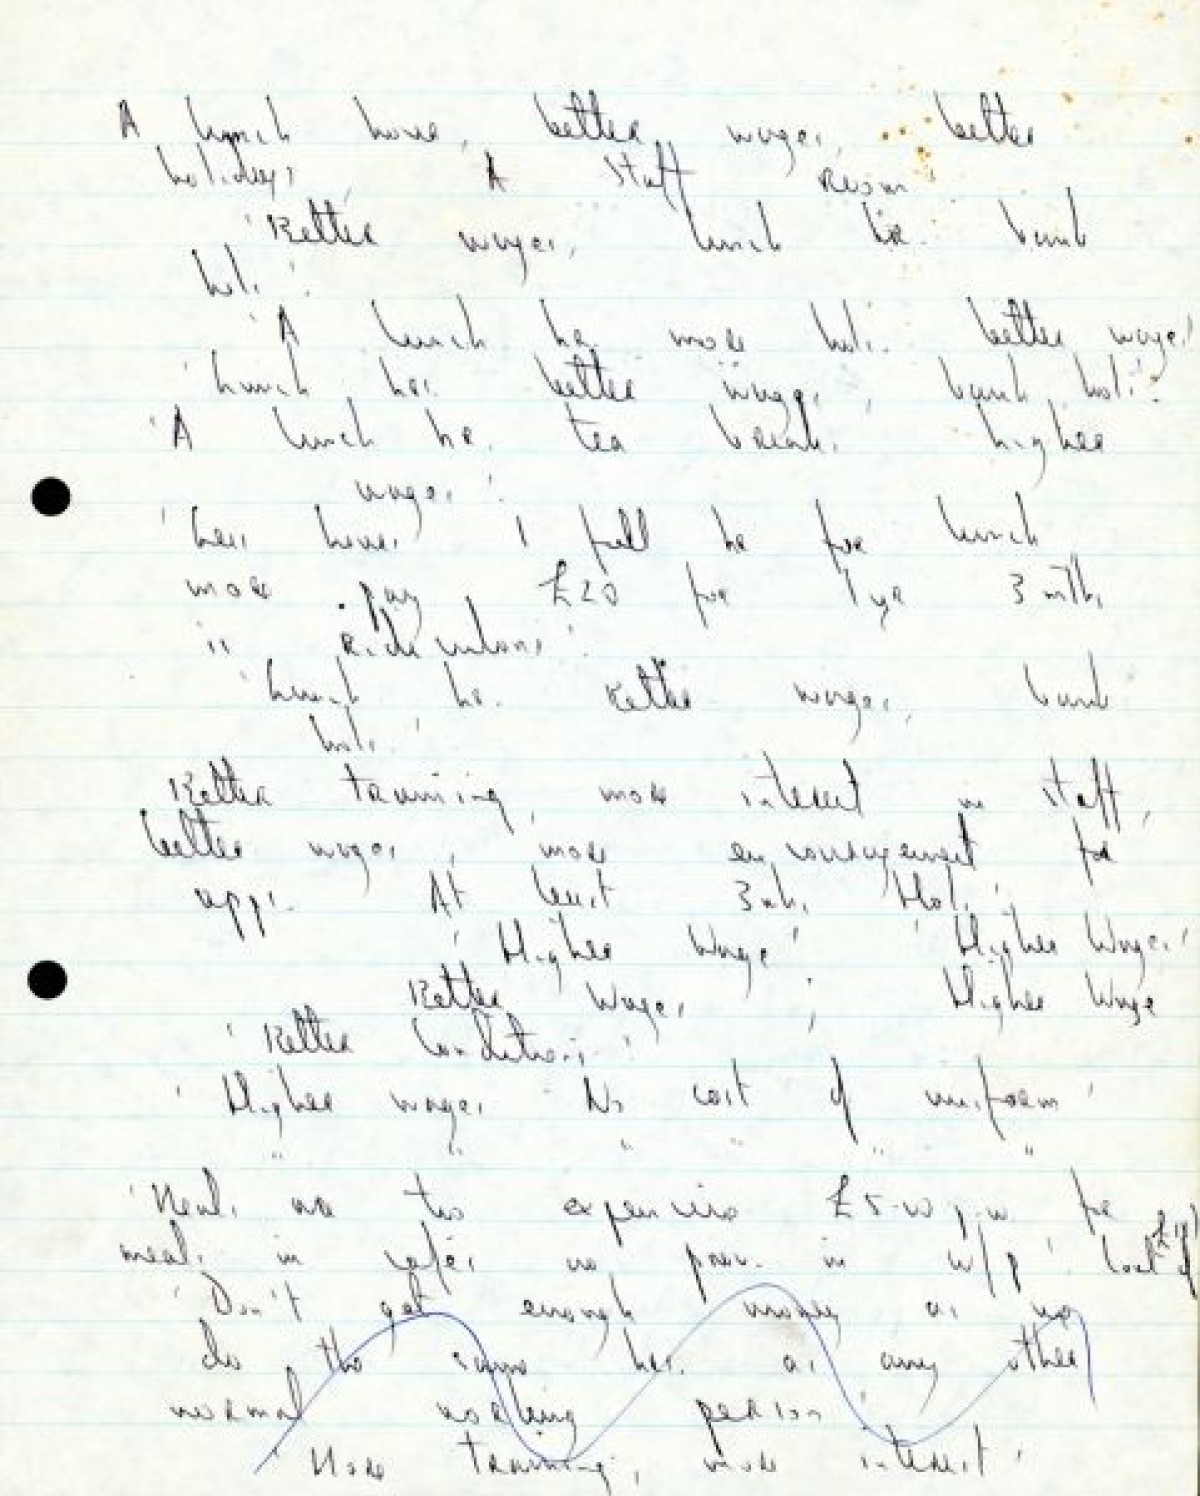 A lunch hour, better wages, better
holidays, A staff Room'
'Better wages, lunch hr. bank
hols'.
'A lunch hr. more hols. better wages'
'Lunch hr. better wages, bank hols'.
'A lunch hr. tea break. higher
wages'.
'Less hours 1 full hr for lunch
more pay £20 for 1 yr 3 mths
is ridiculous'.
'Lunch hr. Better wages, bank
hols.'
Better training, more interest in staff,
better wages, more encouragement for
apps. At least 3 wks Hol.'
'Higher Wage' 'Higher Wages'
Better Wages ; Higher Wage
'Better Conditions'
'Higher wages No cost of uniform'
" " " " " "
'Meals are too expensive £5-10 p.w. for
meals in cafes no prov. in w/p'. Cost of
'Don't get enough money as we
do the same hrs. as any other
normal working person'
'More training, more interest'